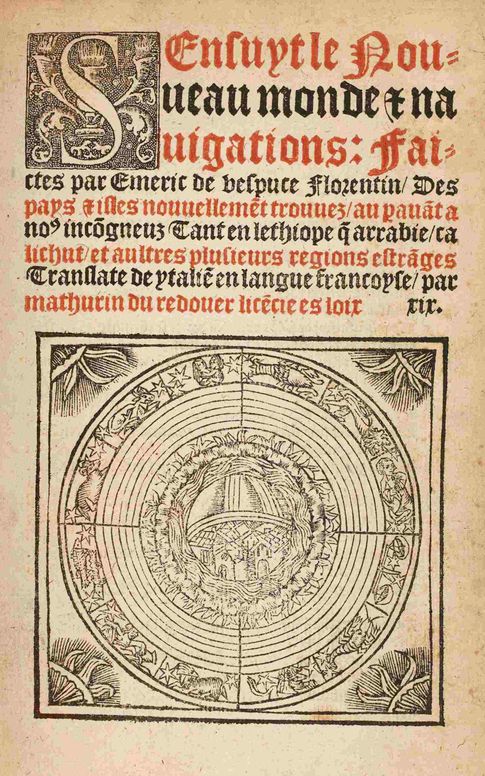 SEnsuyt le Nou-
ueau monde ⁊ na
uigations: Fai-
ctes par Emeric de vespuce Florentin/ Des
pays ⁊ isles nouuellemēt trouuez/ au pauāt a
noꝰ incōgneuz Tant en lethiope q̄ arrabie/ ca
lichut/ et aultres plusieurs regions estrāges
Translate de ytaliē en langue francoyse/ par
mathurin du redouer licēcie es loix xix.